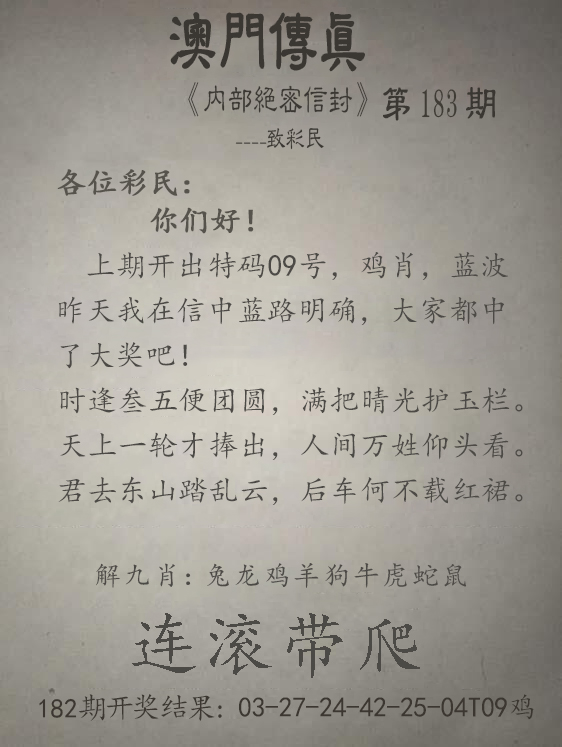 澳門傳眞
《内部絕密信封》第183期
----致彩民
各位彩民：
你们好！
上期开出特码09号，鸡肖，蓝波
昨天我在信中蓝路明确，大家都中
了大奖吧！
时逢叁五便团圆，满把晴光护玉栏。
天上一轮才捧出，人间万姓仰头看。
君去东山踏乱云，后车何不载红裙。
解九肖：兔龙鸡羊狗牛虎蛇鼠
连滚带爬
182期开奖结果：03-27-24-42-25-04T09鸡